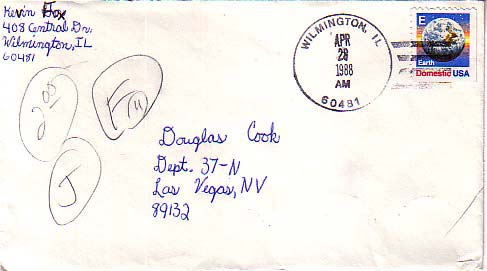 Kevin Fox
408 Central Dr.
Wilmington, IL
60481
WILMINGTON, IL
APR
28
1988
AM
60481
E
Earth
Domestic USA
2 00
F 11
J
Douglas Cook
Dept. 37-N
Las Vegas, NV
89132